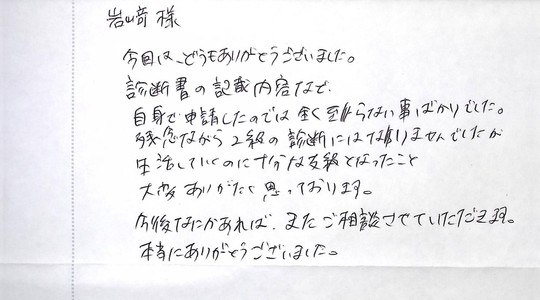 岩﨑様
今回は、どうもありがとうございました。
診断書の記載内容など、
自身で申請したのでは全く至らない事ばかりでした。
残念ながら2級の診断にはなりませんでしたが
生活していくのに十分な支給となったこと
大変ありがたく思っております。
今後なにかあれば、またご相談させていただきます。
本当にありがとうございました。